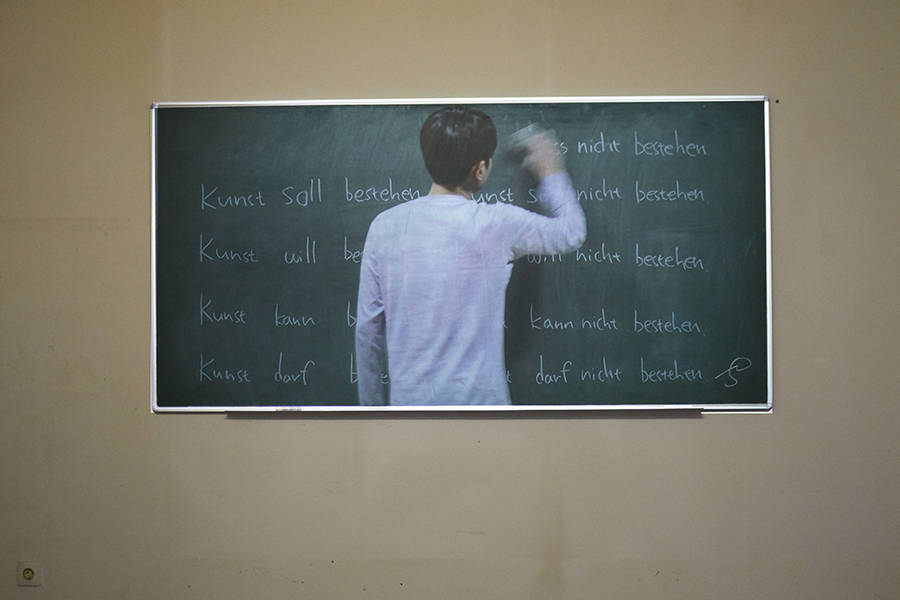 nicht bestehen.
Kunst soll bestehen nicht bestehen
Kunst will will nicht bestehen.
Kunst kann kann nicht bestehen.
Kunst darf darf nicht bestehen.